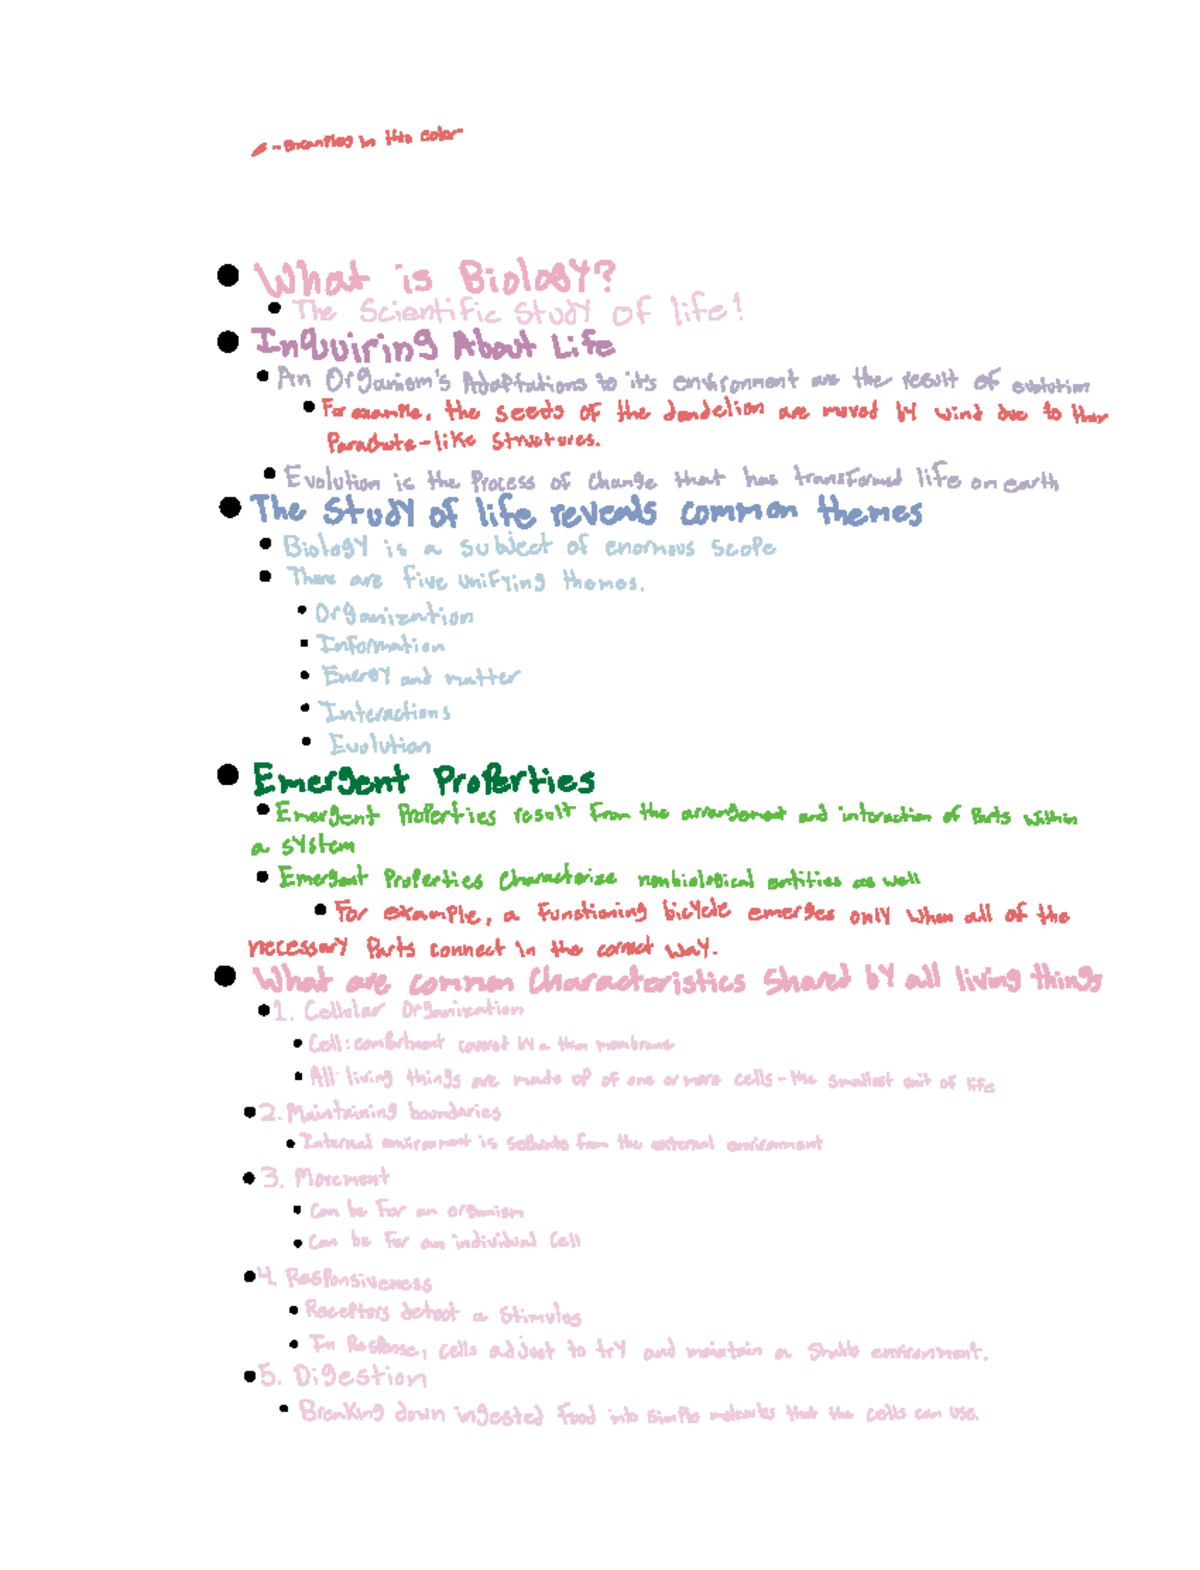 - Examples in this color
What is Biology?
The Scientific Study of life!
Inquiring About Life
An Organism's Adaptations to it's environment are the result of evolution
For example, the seeds of the dandelion are moved by wind due to their
Parachute-like structures.
Evolution is the Process of change that has transformed life on earth
The Study of life reveals common themes
Biology is a subject of enormous scope
There are five unifying themes.
Organization
Information
Energy and matter
Interactions
Evolution
Emergent Properties
Emergent Properties result from the arrangement and interaction of Parts within
a system
Emergent Properties Characterize nonbiological entities as well
For example, a functioning bicycle emerges only when all of the
necessary Parts connect in the correct way.
What are common Characteristics Shared by all living things
1. Cellular Organization
Cell: compartment covered by a thin membrane
All living things are made up of one or more cells - the smallest unit of life
2. Maintaining boundaries
Internal environment is separate from the external environment
3. Movement
Can be for an organism
Can be for an individual Cell
4. Responsiveness
Receptors detect a stimulus
In Response, cells adjust to try and maintain a stable environment.
5. Digestion
Breaking down ingested food into simple molecules that the cells can use.